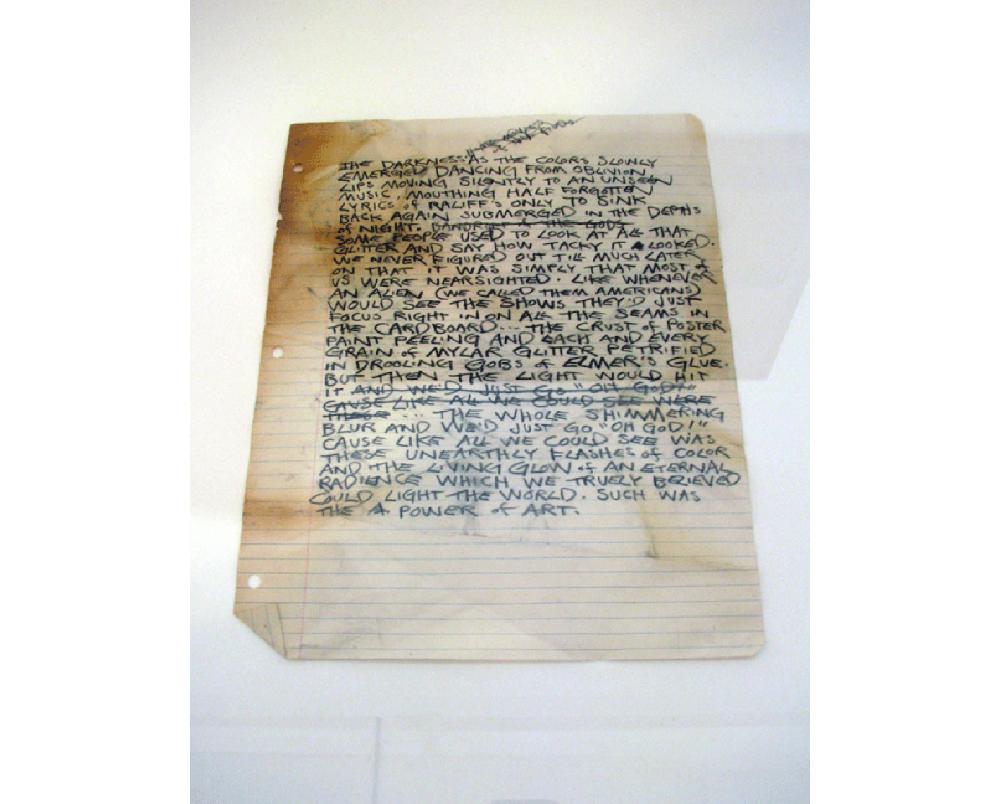 THE DARKNESS AS THE COLORS SLOWLY
EMERGED DANCING FROM OBLIVION
LIPS MOVING SILENTLY TO AN UNSEEN
MUSIC, MOUTHING HALF FORGOTTEN
LYRICS of RALIFF'S ONLY TO SINK
BACK AGAIN SUBMERGED IN THE DEPTHS
of NIGHT. THE GODS
SOME PEOPLE USED TO LOOK AT ALL THAT
GLITTER AND SAY HOW TACKY IT LOOKED.
WE NEVER FIGURED OUT TILL MUCH LATER
ON THAT IT WAS SIMPLY THAT MOST of
US WERE NEARSIGHTED. LIKE WHENEVER
AN ALIEN (WE CALLED THEM AMERICANS)
WOULD SEE THE SHOWS THEY'D JUST
FOCUS RIGHT IN ON ALL THE SEAMS IN
THE CARDBOARD... THE CRUST of POSTER
PAINT PEELING AND EACH AND EVERY
GRAIN of MYLAR GLITTER PETRIFIED
IN DROOLING GOBS of ELMER'S GLUE.
BUT THEN THE LIGHT WOULD HIT
IT AND WE'D JUST GO "OH GOD!"
CAUSE LIKE ALL WE COULD SEE WERE
THESE ... THE WHOLE SHIMMERING
BLUR AND WE'D JUST GO "OH GOD!"
CAUSE LIKE ALL WE COULD SEE WAS
THESE UNEARTHLY FLASHES of COLOR
AND THE LIVING GLOW of AN ETERNAL
RADIENCE WHICH WE TRUELY BELIEVED
COULD LIGHT THE WORLD. SUCH WAS
THE POWER of ART.